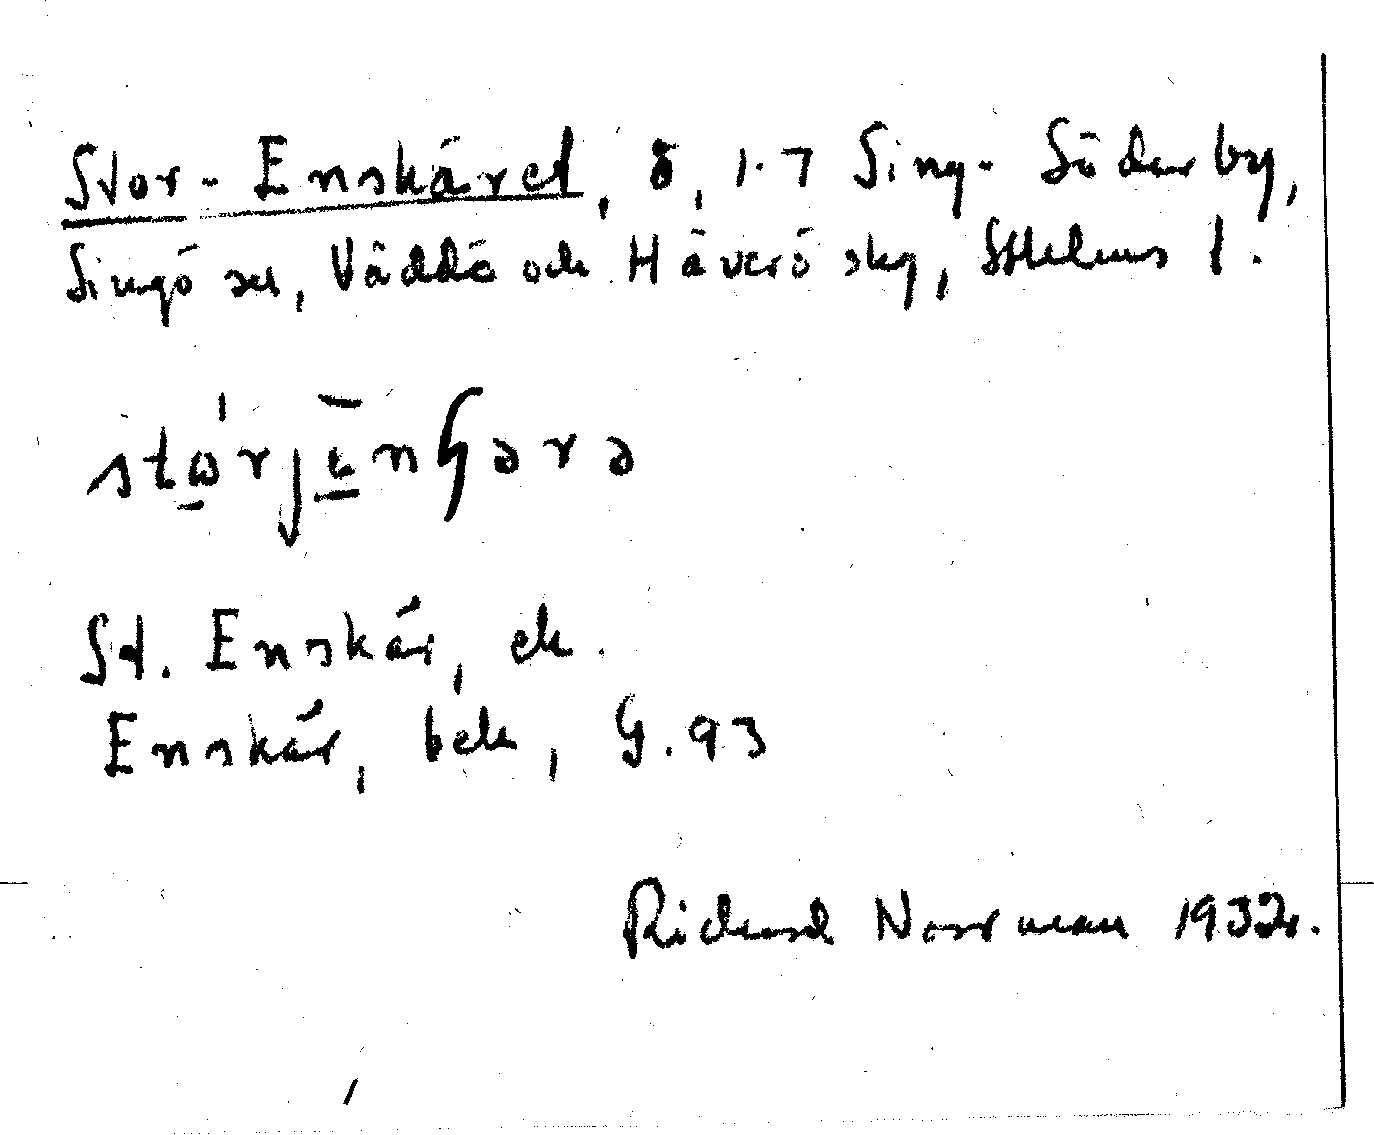 Stor-Enskäret, ö, 1-7 Sing-Söderby,
Singö sn, Väddö och Häverö skg, Sthlms l.
St. Enskär, ek.
Enskär, bek, G.93
Richard Norrman 1932.